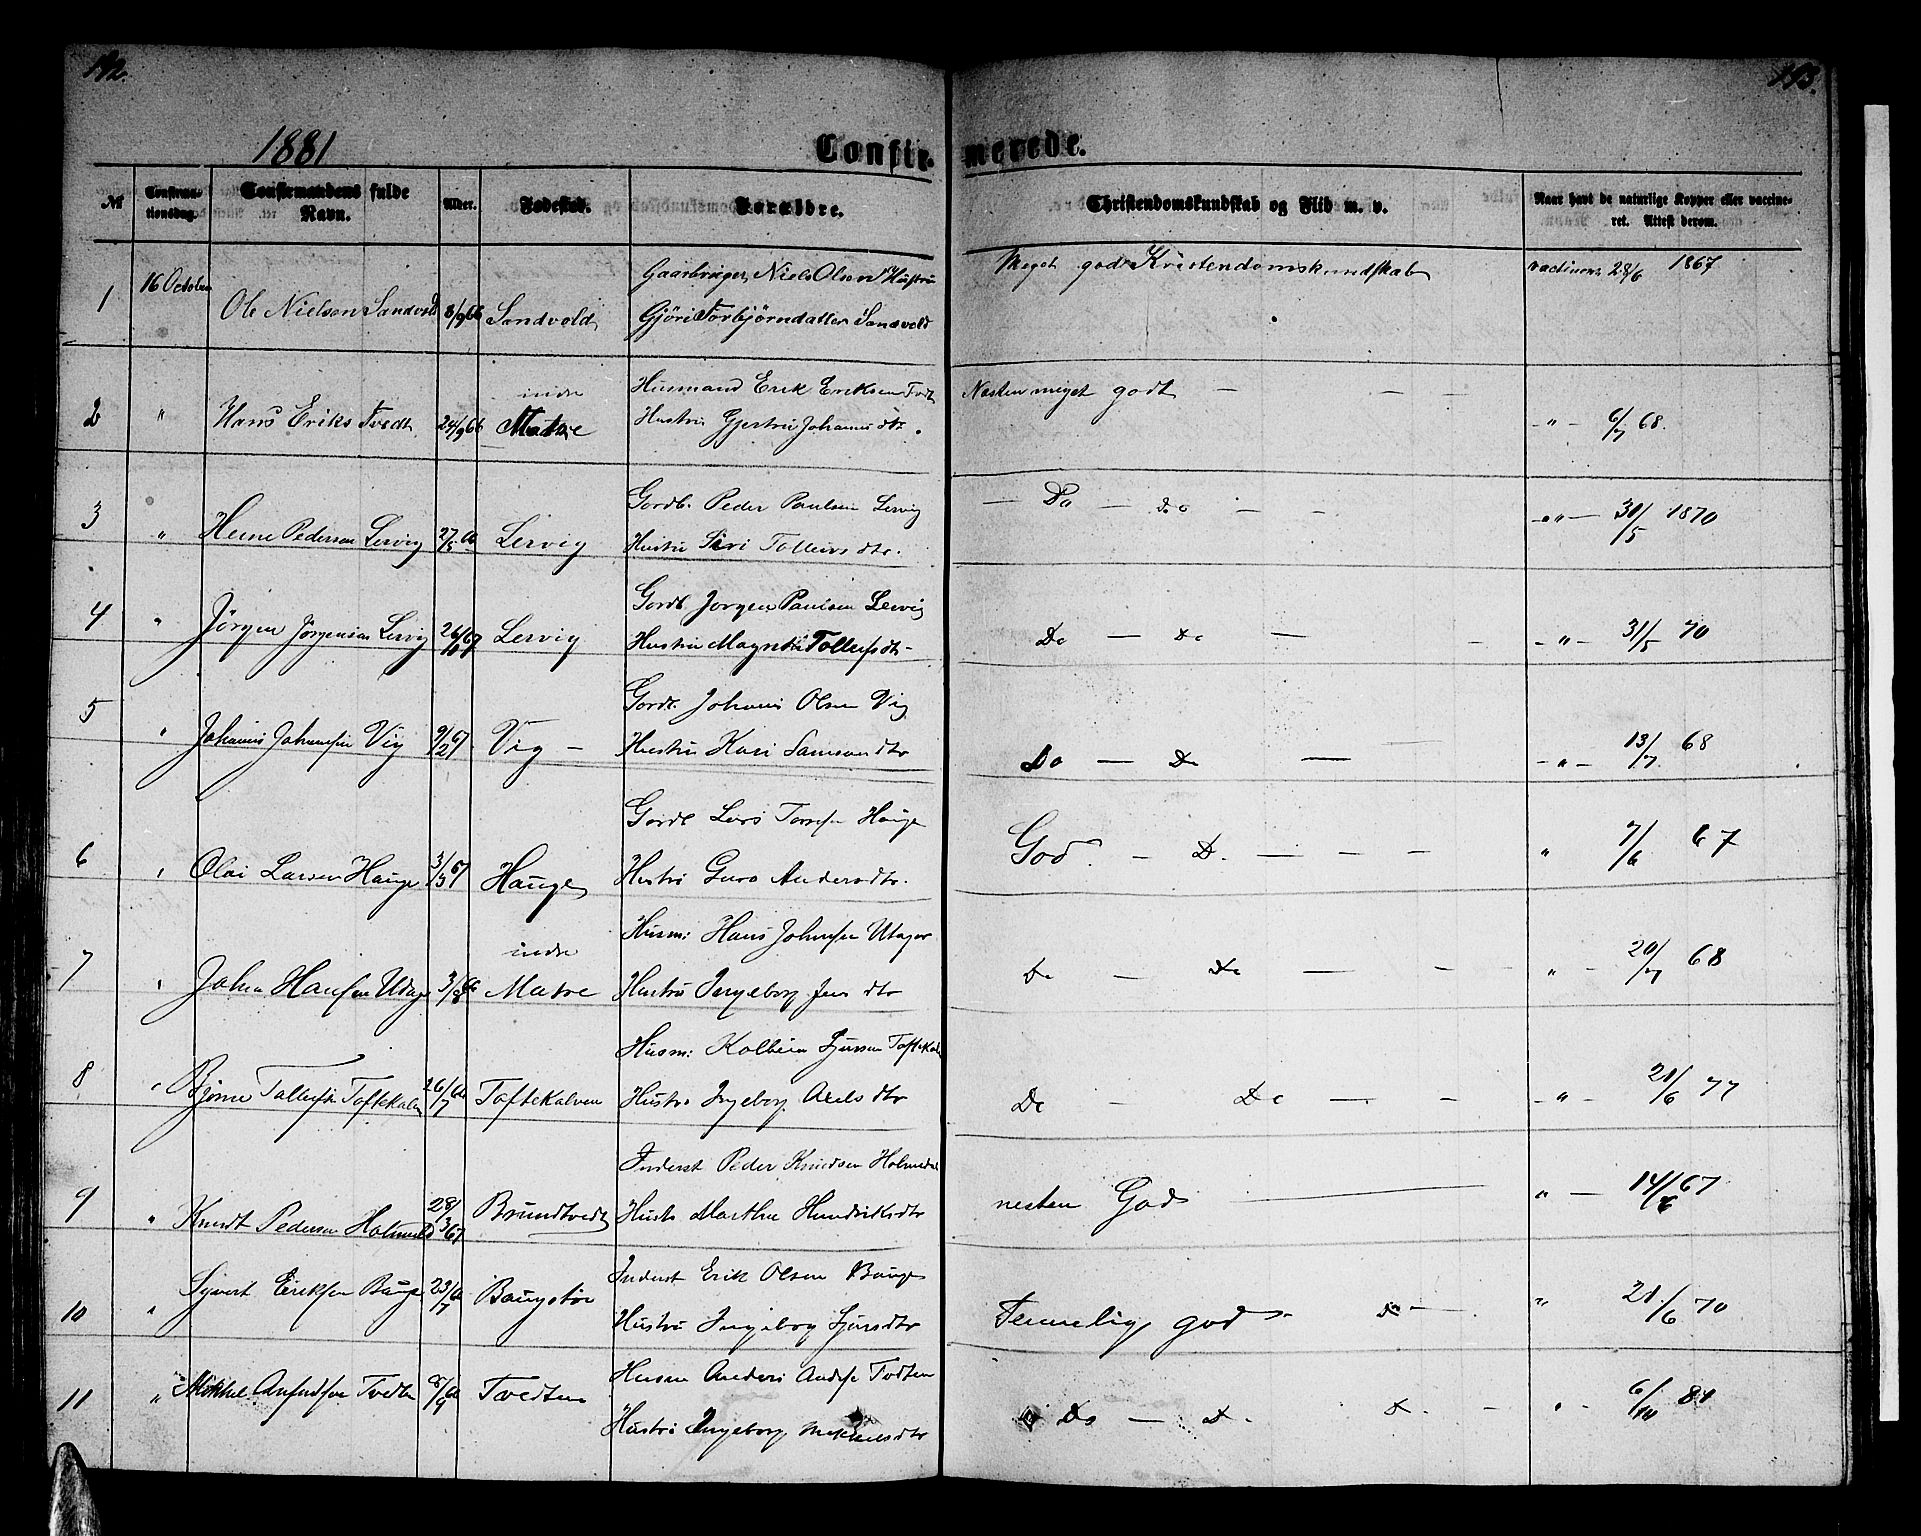 192.
193.
1881
Confir-
merede.
№
Confirma-
tionsdag.
Confirmandens fulde
Navn.
Alder.
Fødested.
Forældre.
Christendomskundskab og Flid m. v.
Naar havt de naturlige Kopper eller vaccine-
ret. Attest derom.
1
16 October
Ole Nielsen Sandvold
8/9 66
Sandvold
Gaarbruger Niels Olsen Hustru
Gjøri Torbjørndatter Sandvold
Meget god Kristendomskundskab
vaccineret 28/6 1867
2
"
Hans Eriks Tvedt
24/9 66
indre
Matre
Husmand Erik Eriksen Tvdt
Hustru Gjertru Johannesdtr.
Nesten meget godt — — —
-"- 6/7 68.
3
"
Heine Pedersen Lervig
27/5 66
Lervig
Gordb. Peder Paulsen Lervig
Hustru Siri Tollevsdtr.
— Do — do — -
-"- 31/5 1870
4
"
Jörgen Jörgensen Lervig
26/ 67
Lervig
Gordb Jorgen Paulsen Lervig
Hustru Magnhi Tollefsdtr-
Do — Do — -
-"- 31/5 70
5
"
Johanes Johanesen Vig
9/2 67
Vig —
Gordb. Johanes Olsen Vig
Hustru Kari Samsondtr
Do — Do —
-"- 13/7 68
6
"
Olai Larsen Hauge
3/5 67
Hauge
Gordb Lars Hauge
Hustru Guro Andersdtr.
God. — D. — — —
" 7/6 67
7
"
Johan Hansen Utager
3/8 66
indre
Matre
Husm: Hans Johnsen Utager
Hustru Ingeborg Jensdtr
Do — Do — - -
" - 20/7 68
8
"
Bjørne Tollefsen Toftekalven
26/7 66
Toftekalven
Husm: Kolbein Sjursen Toftekalv
Hustru Ingeborg Axelsdtr
Do - Do — -
-"- 21/6 77
9
"
Knudt Pedersen Holmedal
28/3 67
Brundtvedt
Inderst Peder Knudsen Holmedal
Hustr Marthe Hendriksdtr
nesten God ———
" — 14/6 67
10
"
Syvert Eriksen Bauge
23/7 66
Baugstøe
Inderst Erik Olsen Bauge
Hustru Ingeborg Sjursdtr
Temmelig god - do —
" 21/6 70
11
"
Mikkel Tvedten
8/9 66
Tvedten
Husm Anders Tvdten
Hustru Ingeborg Mikkelsdtr
Do — D. D. -
" - 6/10 81